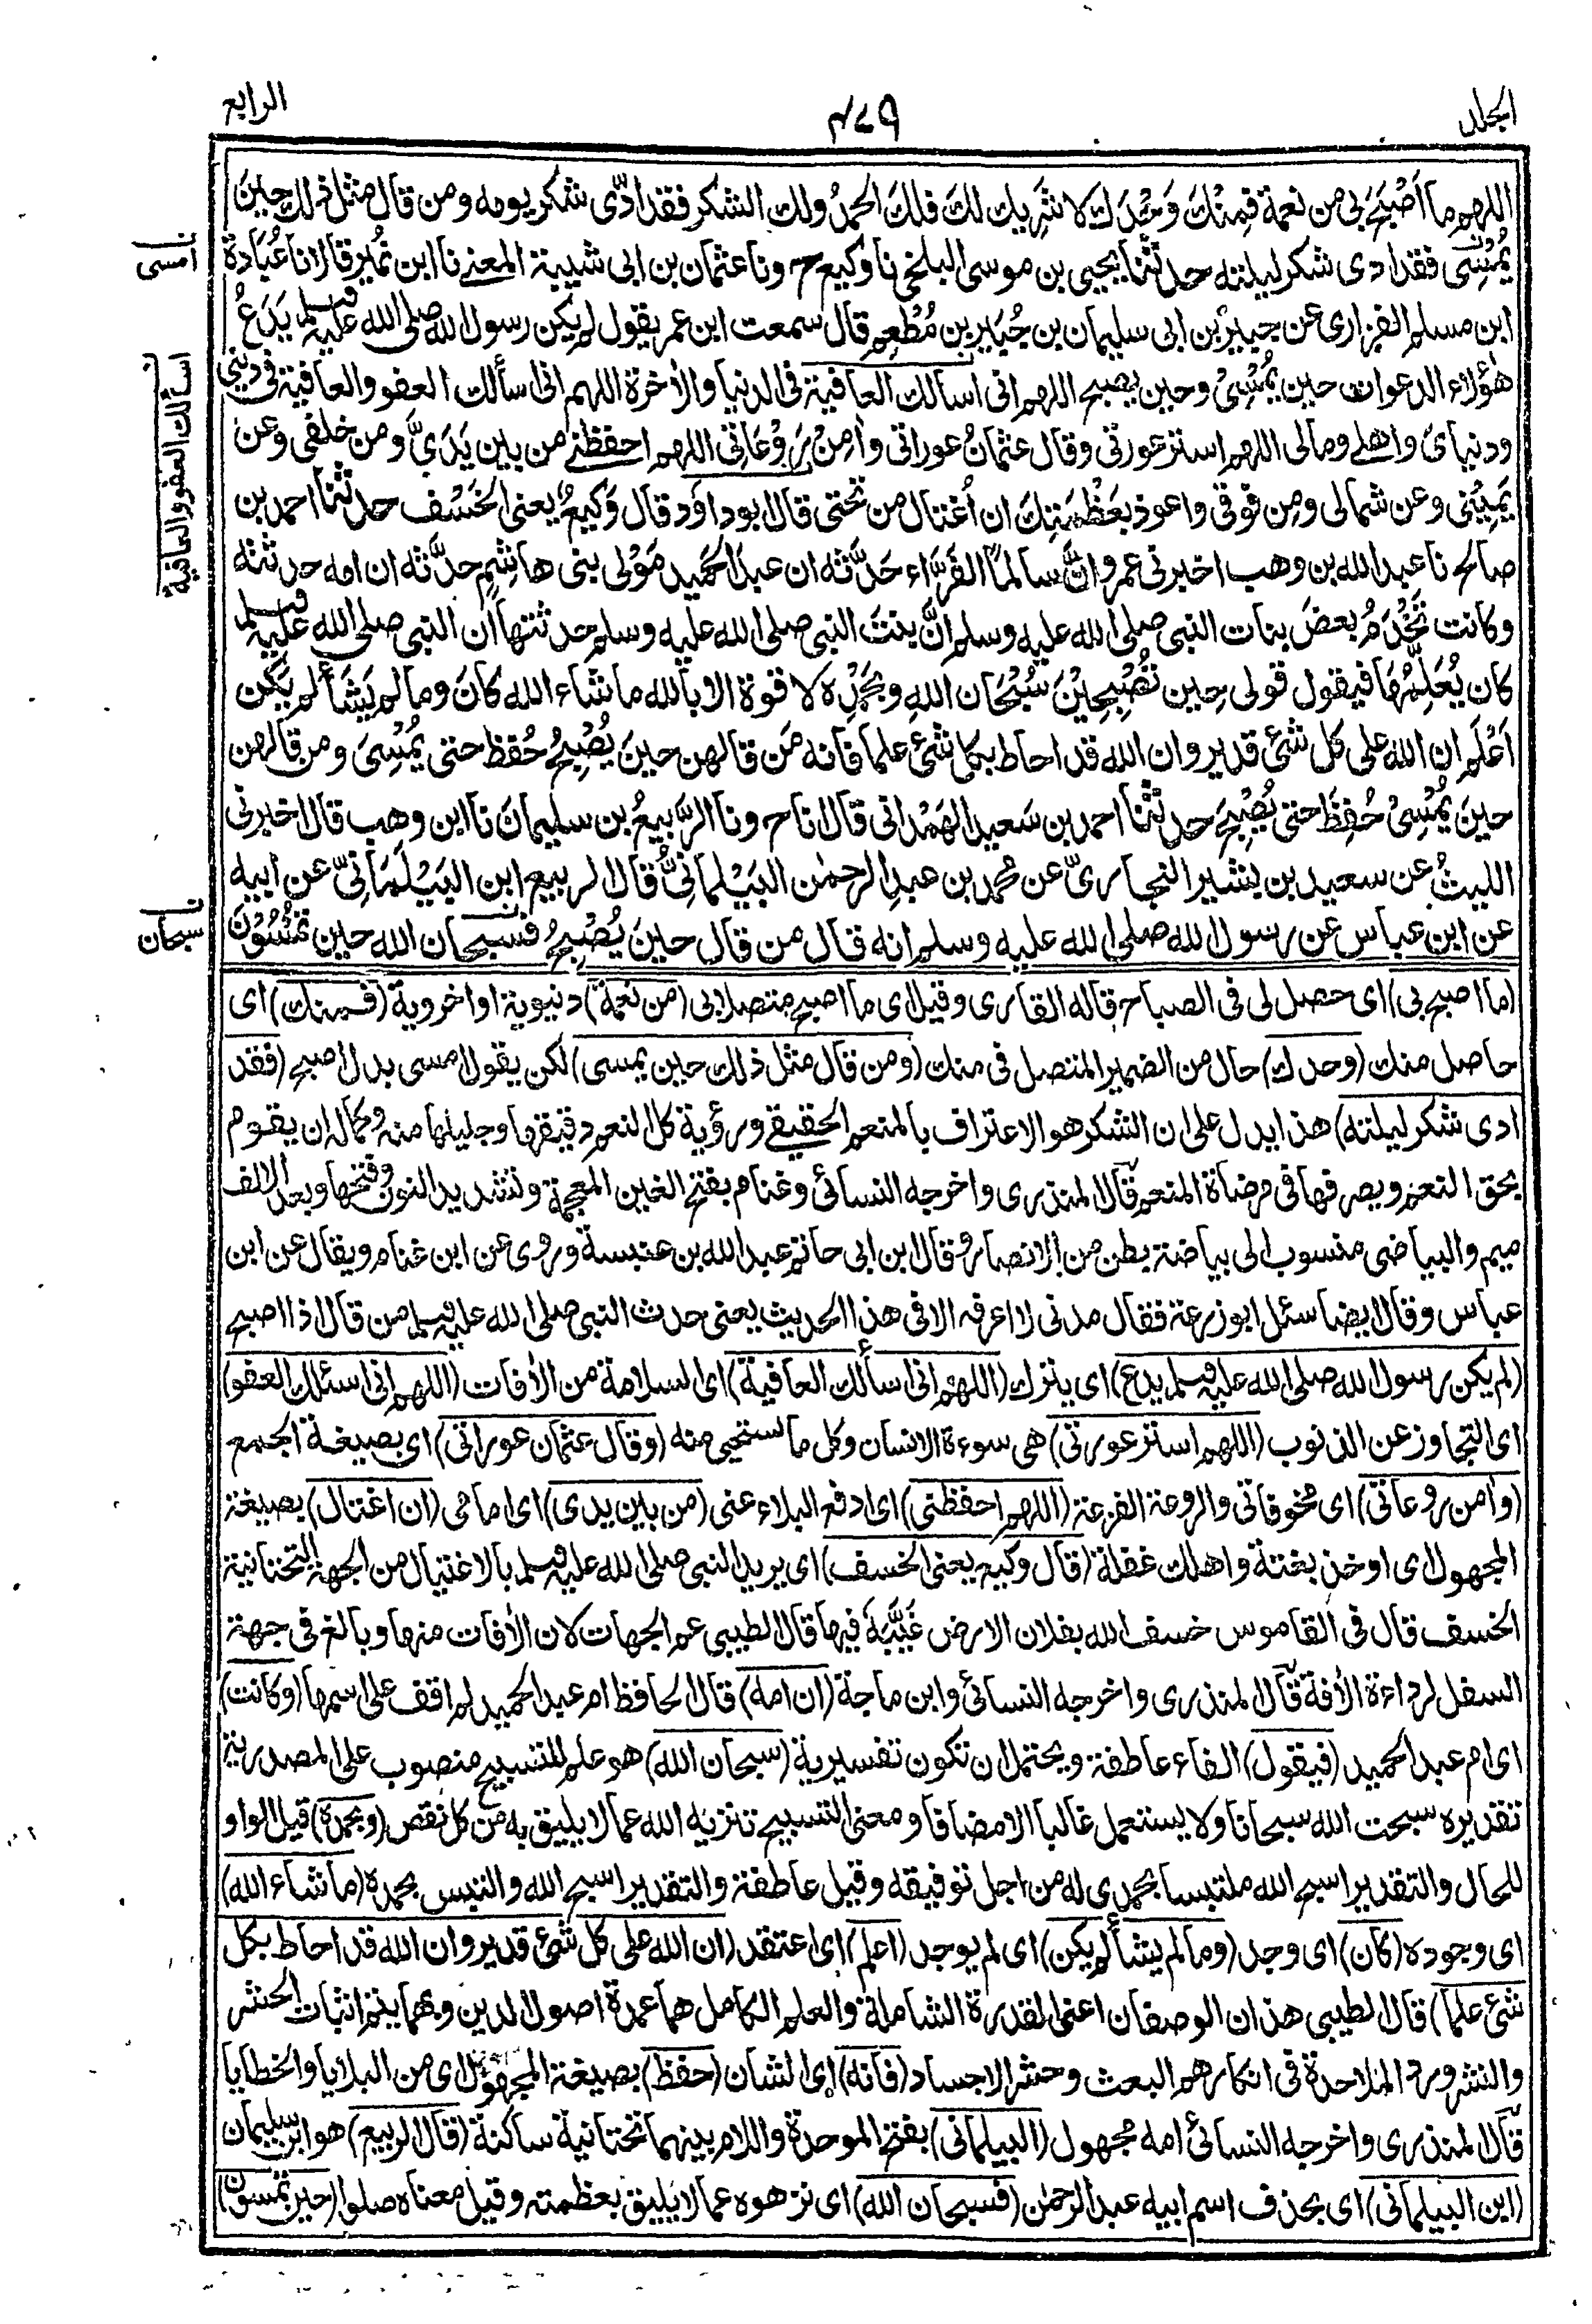 المجلد
٤٧٩
الرابع
اللهم ما اَصْبَحَ بى من نعمة فَمِنْكَ وَحْدَكَ لا شَرِيك لك فلكَ الحمدُ ولك الشكر فقد ادّى شكر يومه ومن قال مثل ذلك حِينَ
يُمْسِى فقد ادى شكر ليلته حدثنا يحيى بن موسى البلخى نا وكيع ح ونا عثمان بن ابى شيبة المعنى نا ابن نُمير قالا نا عُبَادة
ابن مسلم الفزارى عن جبير بن ابى سليمان بن جُبَير بن مُطْعِم قال سمعت ابن عمر يقول لم يكن رسول الله صلى الله عليه وسلم يَدَعُ
هؤلاء الدعوات حين يُمْسِىْ وحين يصبح اللهم انى اسألك العافية فى الدنيا والأخرة اللهم انى اسألك العفو والعافية فى دينى
ودنياىَ واهلى ومالى اللهم استر عورتى وقال عثمانُ عوراتى وأمِنْ رَوْعَاتِى اللهم احفظنى من بين يَدَىَّ ومن خلفى وعن
يَمِيْنِى وعن شمالى ومِن فوقى واعوذ بعَظْمَتِكَ ان اُغتال من تحتى قال ابو داؤد قال وَكِيعٌ يعنى الخَسْف حدثنا احمد بن
صالح نا عبد الله بن وهب اخبرنى عمرو انَّ سالمًا الفَرَّاء حَدَّثه ان عبد الحَمِيد مَوْلى بنى هاشِم حدَّثه ان امه حدثته
وكانت تَخْدُمُ بعضَ بنات النبى صلى الله عليه وسلم انَّ بنتَ النبى صلى الله عليه وسلم حدثتها ان النبى صلى الله عليه وسلم
كان يُعَلِّمُهَا فيقول قولى حِين تُصْبِحِيْنَ سُبْحَان اللهِ وبحَمْدِه لا قوة الا بالله ما شاء الله كانَ وما لم يَشَأ لم يَكن
اَعْلَم ان الله على كل شئ قدير وان الله قد احاط بكل شئ علما فانه مَن قالهن حينَ يُصْبِحُ حُفظ حتى يُمْسِىَ ومن قالهن
حينَ يُمْسِىْ حُفِظَ حتى يُصْبِحَ حدثنا احمد بن سَعيد الهَمْدانى قال انا ح ونا الرَّبيعُ بن سليمانَ نا ابن وهب قال اخبرنى
الليثُ عن سعيد بن بشير النجارىّ عن محمد بن عبد الرحمن البَيْلمانىِّ قال الربيع ابن البَيْلَمَانىّ عن ابيه
عن ابن عباس عن رسول الله صلى الله عليه وسلم انه قال من قال حينَ يُصْبِحُ فسبحان الله حين تُمْسُوْنَ
امسى
اسألك العفو والعافية
سبحان
(ما اصبح بى) اى حصل لى فى الصباح قاله القارى وقيل اى ما اصبح متصلا بى (من نعمة) دنيوية او اخروية (فمنك) اى
حاصل منك (وحدك) حال من الضمير المتصل فى منك (ومن قال مثل ذلك حين يمسى) لكن يقول امسى بدل اصبح (فقد
ادى شكر ليلته) هذا يدل على ان الشكر هو الاعتراف بالمنعم الحقيقى ورؤية كل النعم دقيقها وجليلها منه وكماله ان يقوم
بحق النعم ويصرفها فى مرضاة المنعم قال المنذرى واخرجه النسائى وغنام بفتح الغين المعجمة وتشديد النون وفتحها وبعد الالف
ميم والبياضى منسوب الى بياضة بطن من الانصار وقال ابن ابى حاتم عبد الله بن عنبسة وروى عن ابن غنام ويقال عن ابن
عباس وقال ايضا سئل ابو زرعة فقال مدنى لا اعرفه الا فى هذا الحديث يعنى حدث النبى صلى الله عليه وسلم من قال اذا اصبح
(لم يكن رسول الله صلى الله عليه وسلم يدع) اى يترك (اللهم انى سألك العافية) اى السلامة من الأفات (اللهم انى اسئلك العفو)
اى التجاوز عن الذنوب (اللهم استر عورتى) هى سوءة الانسان وكل ما تستحيى منه (وقال عثمان عوراتى) اى بصيغة الجمع
(وأمن روعاتى) اى مخوفاتى والروعة الفزعة (اللهم احفظنى) اى ادفع البلاء عنى (من بين يدى) اى امامى (ان اغتال) بصيغة
المجهول اى اوخذ بغتة واهلك غفلة (قال وكيع يعنى الخسف) اى يريد النبى صلى الله عليه وسلم بالاغتيال من الجهة التحتانية
الخسف قال فى القاموس خسف الله بفلان الارض غَيَّبَهُ فيها قال الطيبى عم الجهات لان الأفات منها وبالغ فى جهة
السفل لرداءة الأفة قال المنذرى واخرجه النسائى وابن ماجة (ان امه) قال الحافظ ام عبد الحميد لم اقف على اسمها (وكانت)
اى ام عبد الحميد (فيقول) الفاء عاطفة ويحتمل ان تكون تفسيرية (سبحان الله) هو علم للتسبيح منصوب على المصدرية
تقديره سبحت الله سبحانا ولا يستعمل غالبا الا مضافا ومعنى التسبيح تنزيه الله عما لا يليق به من كل نقص (وبحمده) قيل الواو
للحال والتقدير اسبح الله ملتبسا بحمدى له من اجل توفيقه وقيل عاطفة والتقدير اسبح الله والتبس بحمده (ما شاء الله)
اى وجوده (كان) اى وجد (وما لم يشأ لم يكن) اى لم يوجد (اعلم) اى اعتقد (ان الله على كل شئ قدير وان الله قد احاط بكل
شئ علما) قال الطيبى هذان الوصفان اعنى القدرة الشاملة والعلم الكامل هما عمدة اصول الدين وبهما يتم اثبات الحشر
والنشر ورد الملاحدة فى انكارهم البعث وحشر الاجساد (فانه) اى الشان (حفظ) بصيغة المجهول اى من البلايا والخطايا
قال المنذرى واخرجه النسائى امه مجهول (البيلمانى) بفتح الموحدة واللام بينهما تحتانية ساكنة (قال الربيع) هو ابن سليمان
(ابن البيلمانى) اى بحذف اسم ابيه عبد الرحمن (فسبحان الله) اى نزهوه عما لا يليق بعظمته وقيل معناه صلوا (حين تمسون)